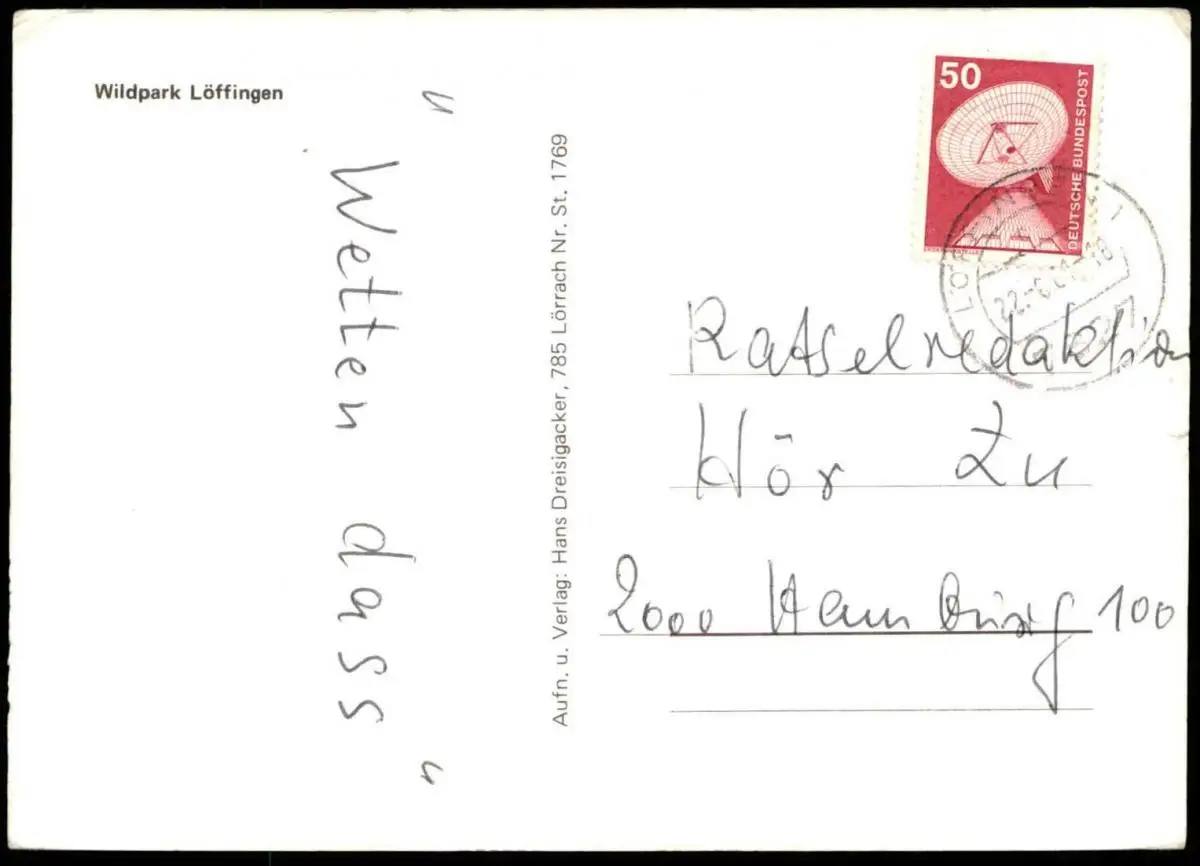 Wildpark Löffingen
" Wetten dass "
Aufn. u. Verlag: Hans Dreisigacker, 785 Lörrach Nr. St. 1769
50
DEUTSCHE BUNDESPOST
Ratselredaktion
Hör Zu
2000 Hamburg 100